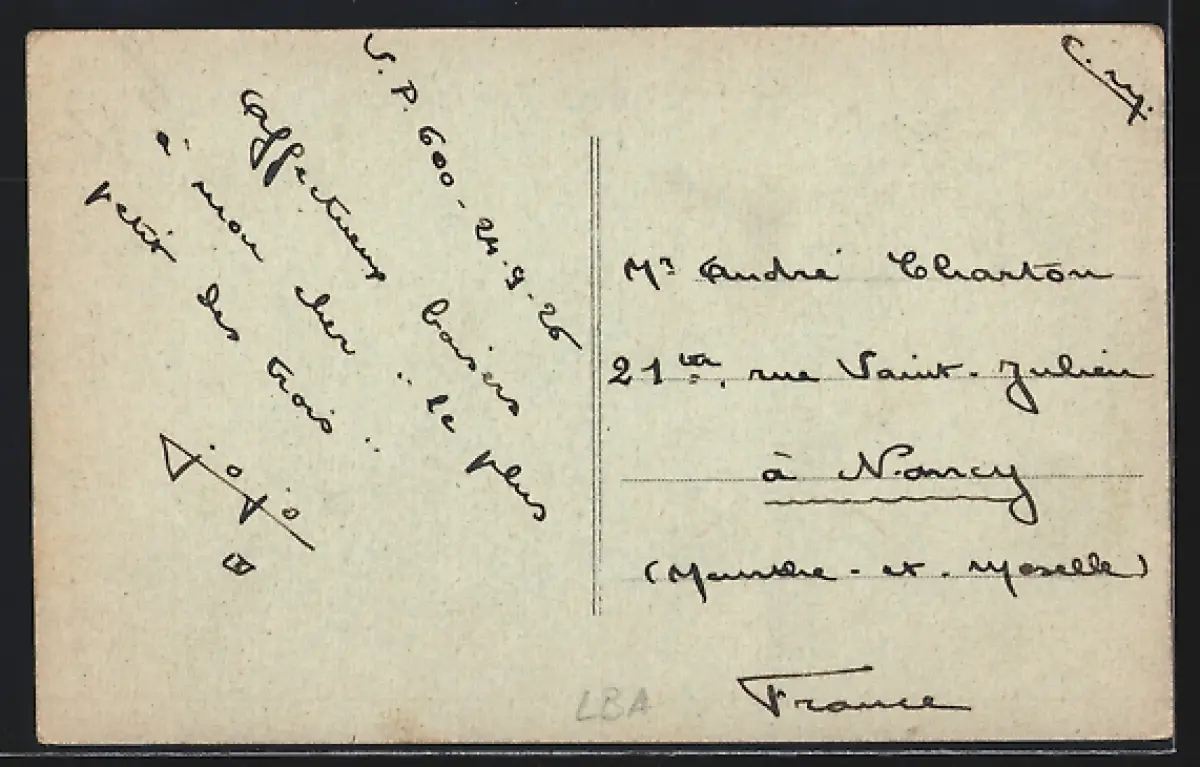 S. P. 600 - 24.9.26
Affectueux baisers
à mon cher "le plus
petit des trois".
Jojo
C. M.
Mr André Charton
21 ter, rue Saint-Julien
à Nancy
(Meurthe-et-Moselle)
France
LBA